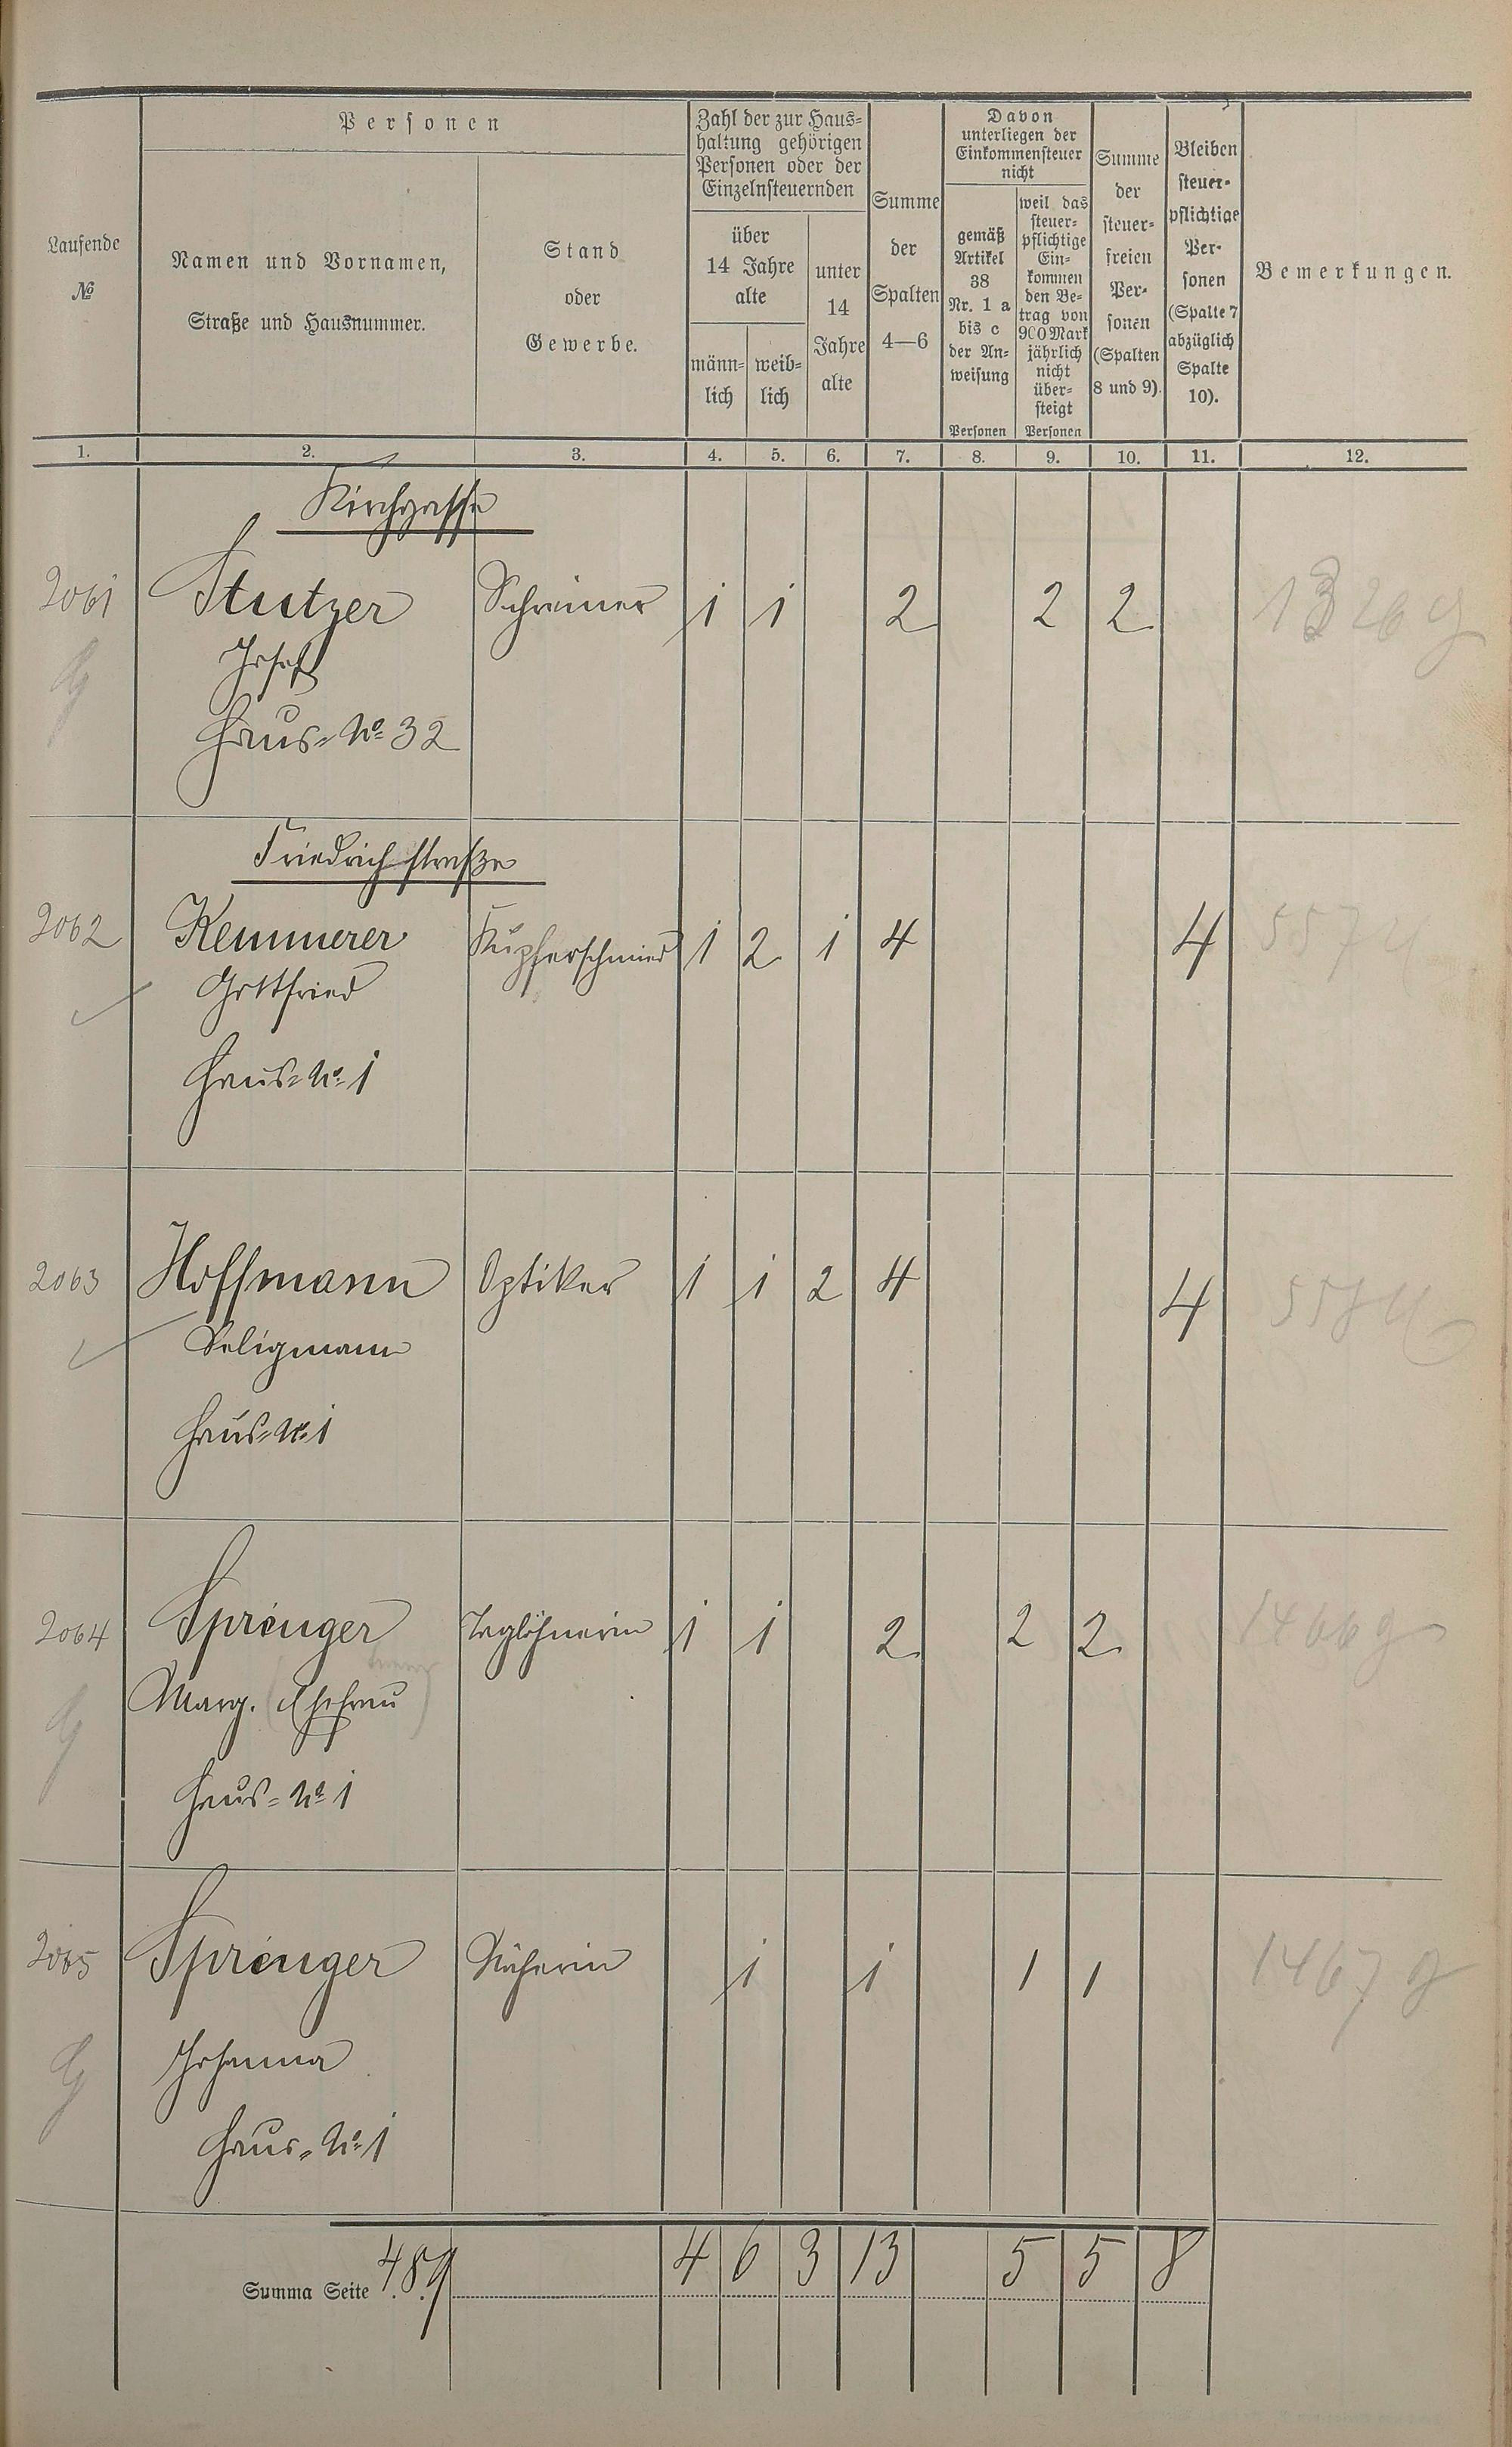 Laufende
№
Personen
Namen und Vornamen,
Straße und Hausnummer.
Stand
oder
Gewerbe.
Zahl der zur Haus-
haltung gehörigen
Personen oder der
Einzelnsteuernden
über
14 Jahre
alte
männ-
lich
weib-
lich
unter
14
Jahre
alte
Summe
der
Spalten
4—6
Davon
unterliegen der
Einkommensteuer
nicht
gemäß
Artikel
38
Nr. 1 a
bis c
der An-
weisung
Personen
weil das
steuer-
pflichtige
Ein-
kommen
den Be-
trag von
900 Mark
jährlich
nicht
über-
steigt
Personen
Summe
der
steuer-
freien
Per-
sonen
(Spalten
8 und 9).
Bleiben
steuer-
pflichtige
Per-
sonen
(Spalte 7
abzüglich
Spalte
10).
Bemerkungen.
1. 2. 3. 4. 5. 6. 7. 8. 9. 10. 11. 12.
Kirchgasse
2061 Stutzer Schreiner 1 1 2 2 2 1326 g
Josef
Haus-No 32
Friedrichstraße
2062 Kemmerer Kupferschmied 1 2 1 4 4 557
Gottfried
Haus-No 1
2063 Hoffmann Optiker 1 1 2 4 4 558
Seligmann
Haus-No 1
2064 Sprenger Taglöhnerin 1 1 2 2 2 1466 g
Marg. (Ehefrau)
Haus-No 1
2065 Sprenger Näherin 1 1 1 1 1467 g
Johanna
Haus-No 1
Summa Seite 489 4 6 3 13 5 5 8